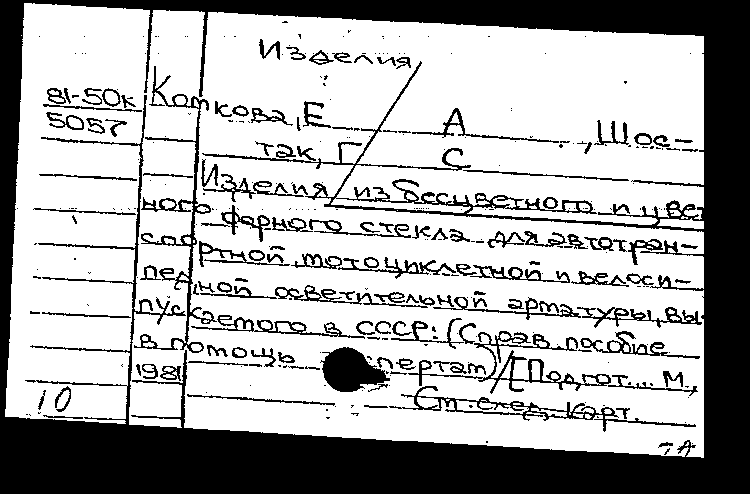 Изделия
81-50к Коткова, Е А , Шос-
5057
так, Г С
Изделия из бесцветного и цвет
ного фарного стекла для автотран-
спортной, мотоциклетной и велоси-
педной осветительной арматуры, вы-
пускаемого в СССР: (Справ. пособие
в помощь экспертам) / [Подгот... М.,
1981
См. след. карт.
10